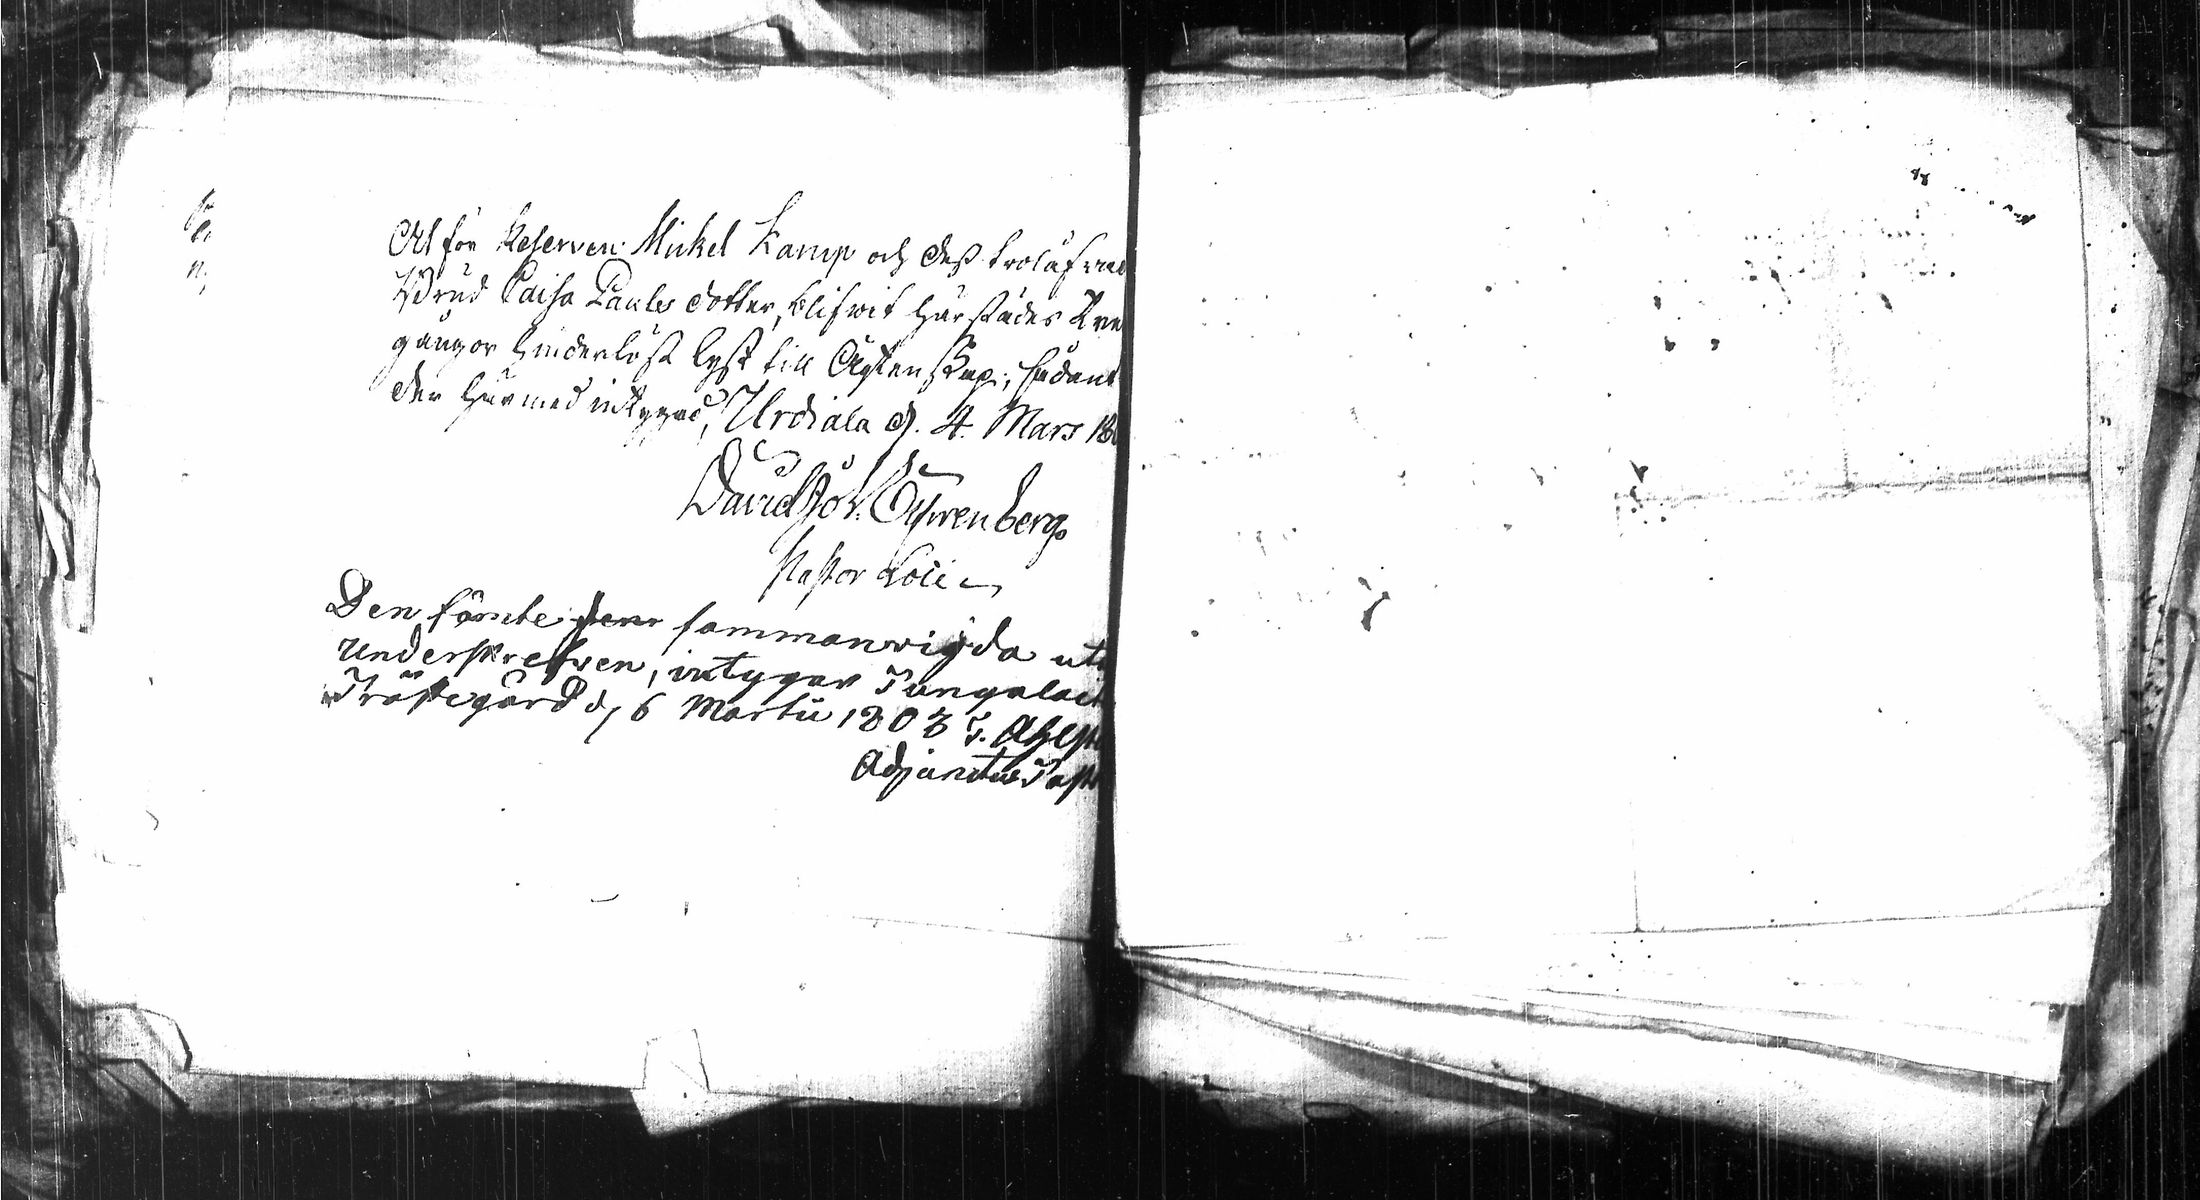 At för Reserven Mickel Kamp och dess trolåfvade
Brud Caisa Pauls dotter, blifwit härstädes tre
gångor hinderlöst lyst till Ägtenskap; sådant
der härmed intygad, Urdiala d. 4. Mars 180
David Joh. Tyrrenberg
Pastor Loci
Den förnte äro sammanvigda utaf
underskrefven, intygar Jungalait
Prästegård d, 6 Martii 1803 J. Ahlst
Adjunctus Past